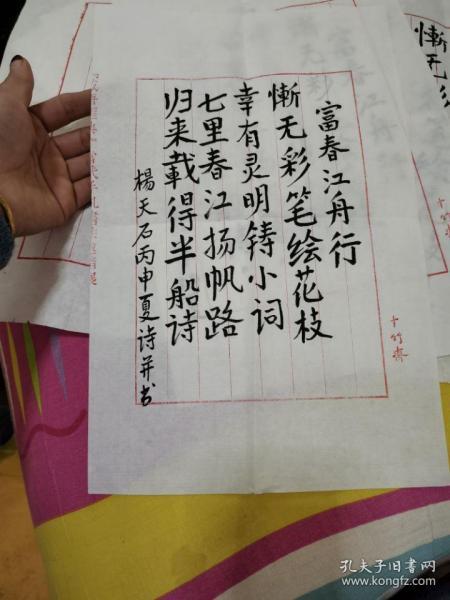 富春江舟行
惭无彩笔绘花枝
幸有灵明铸小词
七里春江扬帆路
归来載得半船诗
楊天石丙申夏诗并书
十竹齋
惭无彩
孔夫子旧书网
www.kongfz.com